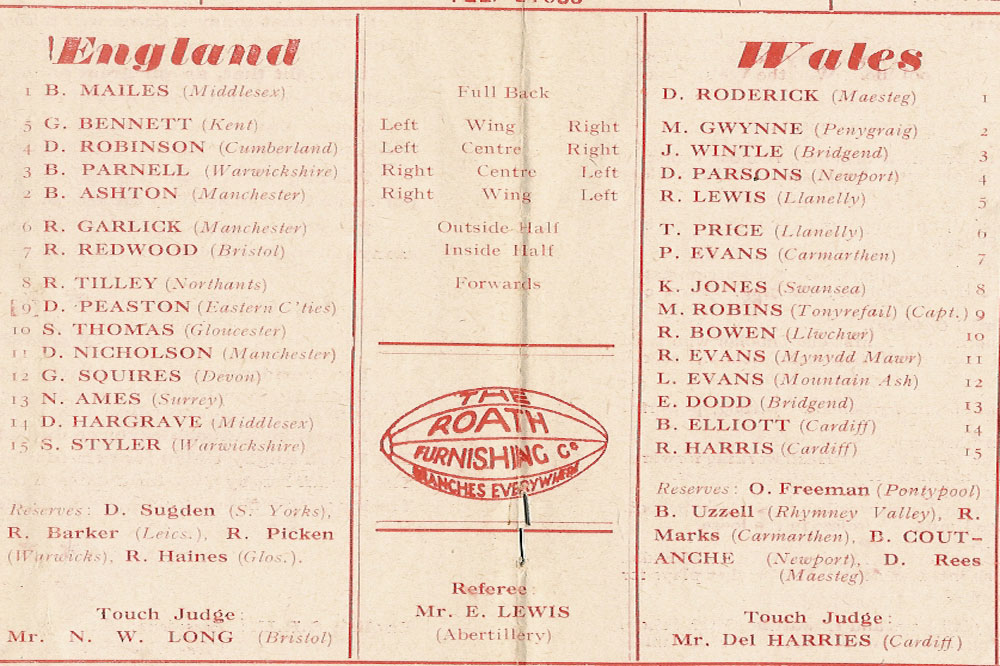 England
1 B. MAILES (Middlesex)
5 G. BENNETT (Kent)
4 D. ROBINSON (Cumberland)
3 B. PARNELL (Warwickshire)
2 B. ASHTON (Manchester)
6 R. GARLICK (Manchester)
7 R. REDWOOD (Bristol)
8 R. TILLEY (Northants)
[9] D. PEASTON (Eastern C'ties)
10 S. THOMAS (Gloucester)
11 D. NICHOLSON (Manchester)
12 G. SQUIRES (Devon)
13 N. AMES (Surrey)
14 D. HARGRAVE (Middlesex)
15 S. STYLER (Warwickshire)
Reserves: D. Sugden (S. Yorks),
R. Barker (Leics.), R. Picken
(Warwicks), R. Haines (Glos.).
Touch Judge:
Mr. N. W. LONG (Bristol)
Full Back
Left Wing Right
Left Centre Right
Right Centre Left
Right Wing Left
Outside Half
Inside Half
Forwards
THE
ROATH
FURNISHING Co
BRANCHES EVERYWHERE
Referee:
Mr. E. LEWIS
(Abertillery)
Wales
D. RODERICK (Maesteg) 1
M. GWYNNE (Penygraig) 2
J. WINTLE (Bridgend) 3
D. PARSONS (Newport) 4
R. LEWIS (Llanelly) 5
T. PRICE (Llanelly) 6
P. EVANS (Carmarthen) 7
K. JONES (Swansea) 8
M. ROBINS (Tonyrefail) (Capt.) 9
R. BOWEN (Llwchwr) 10
R. EVANS (Mynydd Mawr) 11
L. EVANS (Mountain Ash) 12
E. DODD (Bridgend) 13
B. ELLIOTT (Cardiff) 14
R. HARRIS (Cardiff) 15
Reserves: O. Freeman (Pontypool)
B. Uzzell (Rhymney Valley), R.
Marks (Carmarthen), B. COUT-
ANCHE (Newport), D. Rees
(Maesteg)
Touch Judge:
Mr. Del HARRIES (Cardiff)